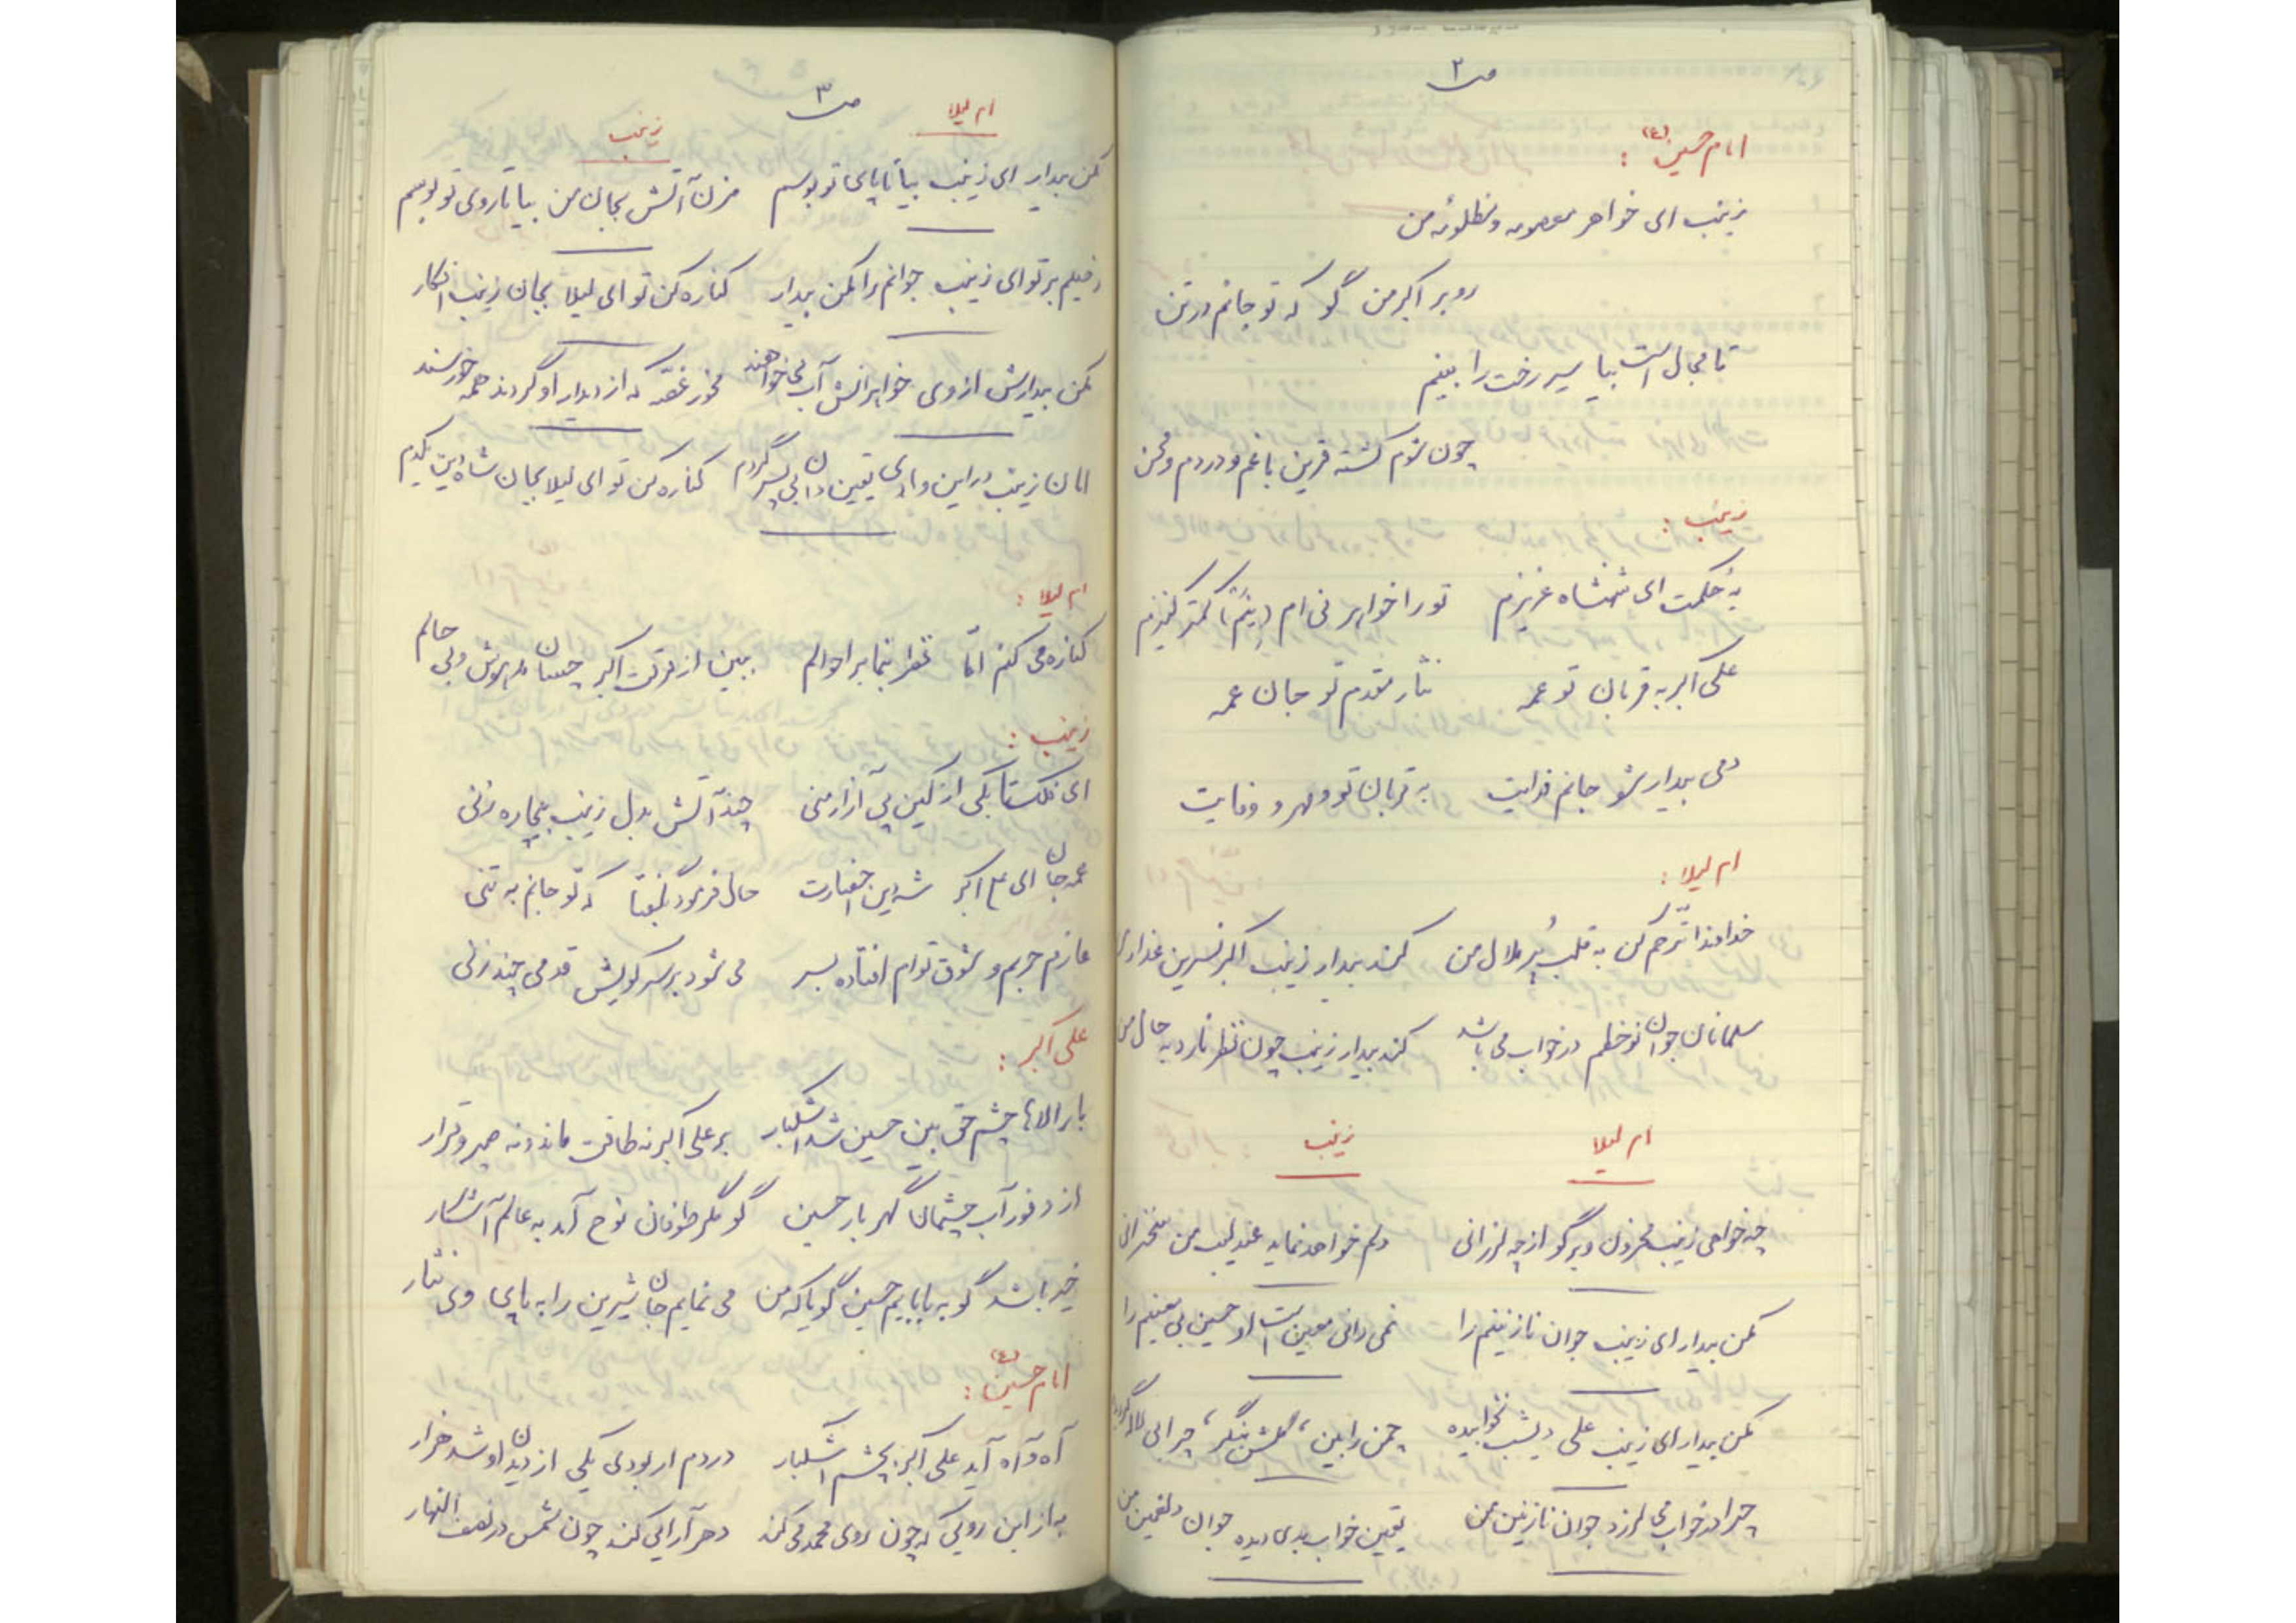 ص ۲
امام حسین (ع) :
زینب ای خواهر معصومه و مظلومه من
رو بر اکبر من گو که تو جانم در تن
تا مجال است بیا سیر رخت را بینم
چون شوم کشته قرین با غم و دردم و محن
زینب :
به حکمت ای شهنشاه عزیزم تو را خواهر نی ام کمتر کنیزم
علی اکبر به قربان تو عمه نثار مقدم تو جان عمه
دمی بیدار شو جانم فدایت به قربان تو و مهر و وفایت
ام لیلا :
خداوندا ترحم کن به قلب پُر ملال من کند بیدار زینب اکبر نسرین عذار
مسلمانان جوان نوخطم در خواب می باشد کند بیدار زینب چون نظر نارد به حال من
ام لیلا زینب
چه خواهی زینب محزون دیگر گو از چه لرزانی دلم خواهد نماید عندلیب من سخنرانی
مکن بیدار ای زینب جوان نازنینم را نمی دانی معین است او حسین بی معینم را
مکن بیدار ای زینب علی دیشب نخوابیده چمن را بین، گلشن نگر، چرا بی لاله گردیده
چرا در خواب می لرزد جوان نازنین من یقین خواب بدی دیده جوان دلغمین من
ص ۳
ام لیلا زینب
مکن بیدار ای زینب بیا تا پای تو بوسم مزن آتش بجان من بیا تا روی تو بوسم
دخیلم بر تو ای زینب جوانم را مکن بیدار کناره کن تو ای لیلا بجان زینب افکار
مکن بیدارش از وی خواهرانش آب می خواهند مخور غصّه که از دیدار او گردند همه خورسند
امان زینب در این وادی یقین دان بی پسر گردم کناره کن تو ای لیلا بجان شاه دین یکدم
ام لیلا :
کناره می کنم امّا نظر بنما بر احوالم ببین از فرقت اکبر چسان مدهوش و بی حالم
زینب :
ای فلک تا بکی از کین پی آزار منی چند آتش بدل زینب بیچاره زنی
عمه جان ای علی اکبر شه دین احضارت حال فرمود بگفتا که تو جانم به تنی
عازم حربم و شوق توام افتاده بسر می شود بر سر کویش قدمی چند زنی
علی اکبر :
بار الاها چشم حق بین حسین شد اشکبار بر علی اکبر نه طاقت ماند و نه صبر و قرار
از وفور آب چشمان گهر بار حسین گو مگر طوفان نوح آمد به عالم آشکار
خیر باشد گو به بابایم حسین گویا که من می نمایم جان شیرین را به پای وی نثار
امام حسین (ع) :
آه و آه آید علی اکبر بچشم اشکبار دردم ار بودی یکی از دیدن او شد هزار
به از این رویی که چون روی محمد می کند دهر آرایی کند چون شمس در نصف النهار